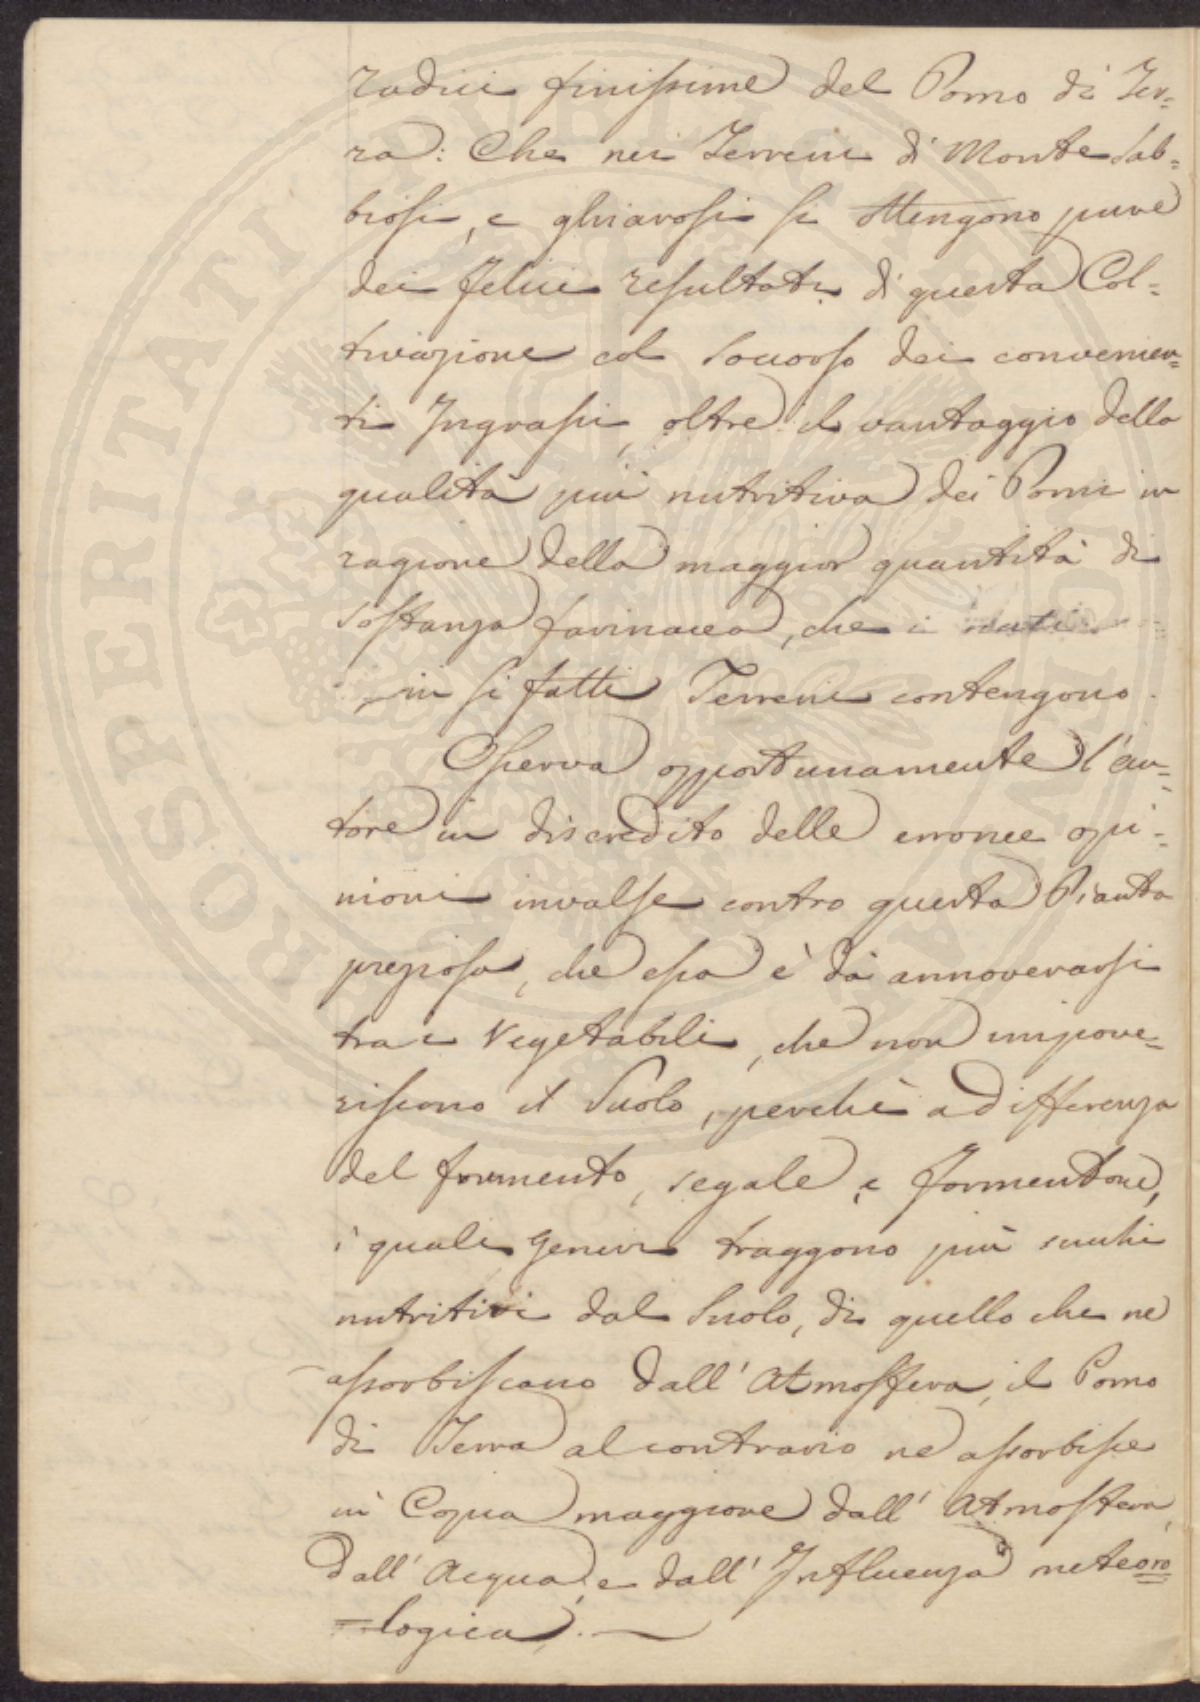 radici finissime del Pomo di Ter=
ra: Che nei Terreni di Monte Sab=
biosi, e ghiarosi si ottengono pure
dei felici resultati di questa Col=
tivazione col soccorso dei convenien=
ti Ingrassi, oltre il vantaggio della
qualità più nutritiva dei Pomi in
ragione della maggior quantità di
sostanza farinacea, che i nati
in si fatti Terreni contengono.
Osserva opportunamente l'au=
tore in discredito delle erronee opi=
nioni invalse contro questa Pianta
preziosa, che essa è da annoverarsi
tra i Vegetabili, che non impove=
riscono il Suolo, perchè a differenza
del formento, segale, e formentone,
i quali generi traggono più succhi
nutritivi dal Suolo, di quello che ne
assorbiscano dall'Atmosfera, il Pomo
di Terra al contrario ne assorbisce
in Copia maggiore dall'Atmosfera,
dall'Acqua, e dall'Influenza meteoro
=logica.
PROSPERITATI PUBLICAE